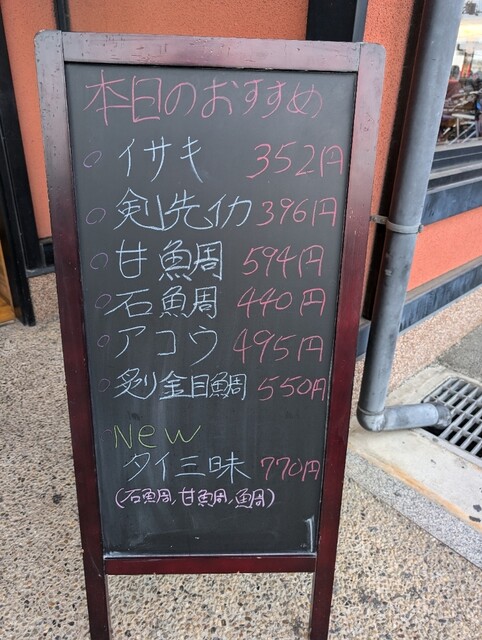 本日のおすすめ
○ イサキ 352円
○ 剣先イカ 396円
○ 甘鯛 594円
○ 石鯛 440円
○ アコウ 495円
○ 炙り金目鯛 550円
NEW
タイ三味 770円
(石鯛,甘鯛,鯛)